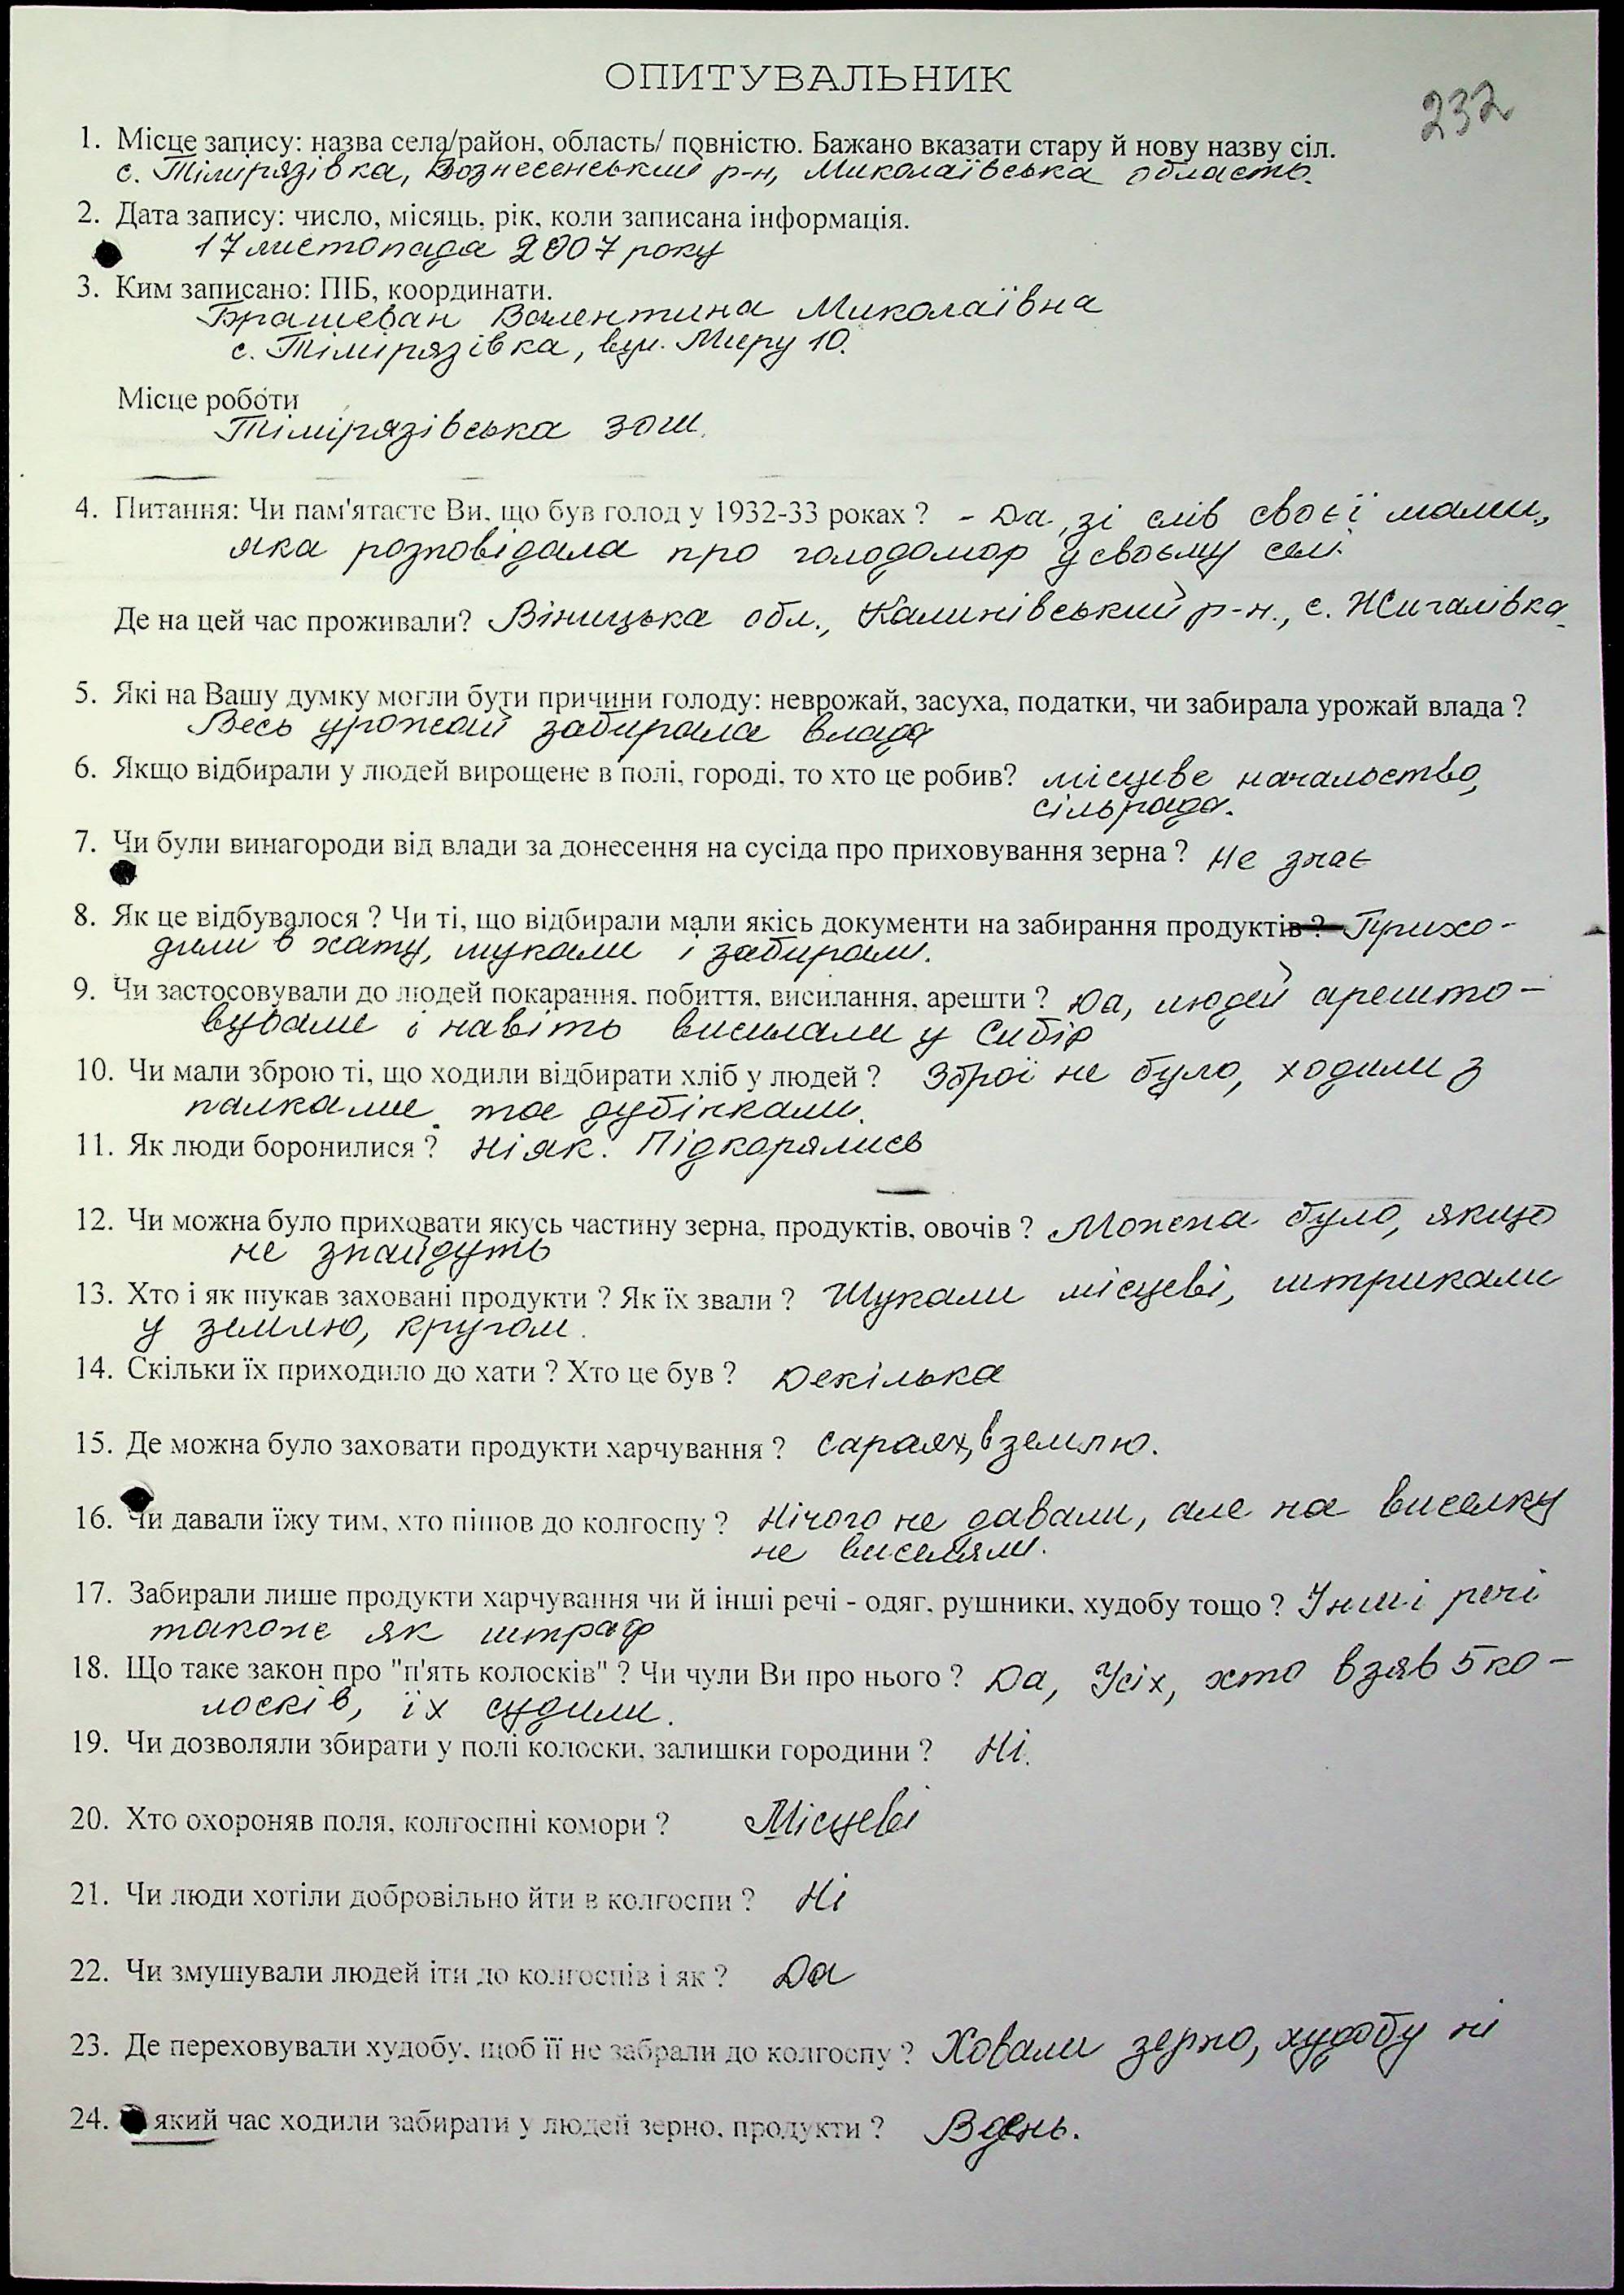 ОПИТУВАЛЬНИК
232
1. Місце запису: назва села/район, область/ повністю. Бажано вказати стару й нову назву сіл.
с. Тімірязівка, Вознесенський р-н, Миколаївська область.
2. Дата запису: число, місяць, рік, коли записана інформація.
17 листопада 2007 року
3. Ким записано: ПІБ, координати.
Брашеван Валентина Миколаївна
с. Тімірязівка, вул. Миру 10.
Місце роботи
Тімірязівська зош.
4. Питання: Чи пам'ятаєте Ви, що був голод у 1932-33 роках ? - Да, зі слів своєї мами,
яка розповідала про голодомор у своєму селі.
Де на цей час проживали? Віницька обл., Калинівський р-н., с. Жигалівка.
5. Які на Вашу думку могли бути причини голоду: неврожай, засуха, податки, чи забирала урожай влада ?
Весь урожай забирала влада
6. Якщо відбирали у людей вирощене в полі, городі, то хто це робив? місцеве начальство,
сільрада.
7. Чи були винагороди від влади за донесення на сусіда про приховування зерна ? не знає
8. Як це відбувалося ? Чи ті, що відбирали мали якісь документи на забирання продуктів ? Прихо-
дили в хату, шукали і забирали.
9. Чи застосовували до людей покарання, побиття, висилання, арешти ? Да, людей арешто-
вували і навіть висилали у Сибір
10. Чи мали зброю ті, що ходили відбирати хліб у людей ? Зброї не було, ходили з
палками та дубінками.
11. Як люди боронилися ? ніяк. Підкорялись
12. Чи можна було приховати якусь частину зерна, продуктів, овочів ? Можна було, якщо
не знайдуть
13. Хто і як шукав заховані продукти ? Як їх звали ? Шукали місцеві, штрикали
у землю, кругом.
14. Скільки їх приходило до хати ? Хто це був ? Декілька
15. Де можна було заховати продукти харчування ? сараях, в землю.
16. Чи давали їжу тим, хто пішов до колгоспу ? Нічого не давали, але на виселку
не виселяли.
17. Забирали лише продукти харчування чи й інші речі - одяг, рушники, худобу тощо ? Інші речі
також як штраф
18. Що таке закон про "п'ять колосків" ? Чи чули Ви про нього ? Да, Усіх, хто взяв 5 ко-
лосків, їх судили.
19. Чи дозволяли збирати у полі колоски, залишки городини ? Ні.
20. Хто охороняв поля, колгоспні комори ? Місцеві
21. Чи люди хотіли добровільно йти в колгоспи ? Ні
22. Чи змушували людей іти до колгоспів і як ? Да
23. Де переховували худобу, щоб її не забрали до колгоспу ? Ховали зерно, худобу ні
24. який час ходили забирати у людей зерно, продукти ? Вдень.